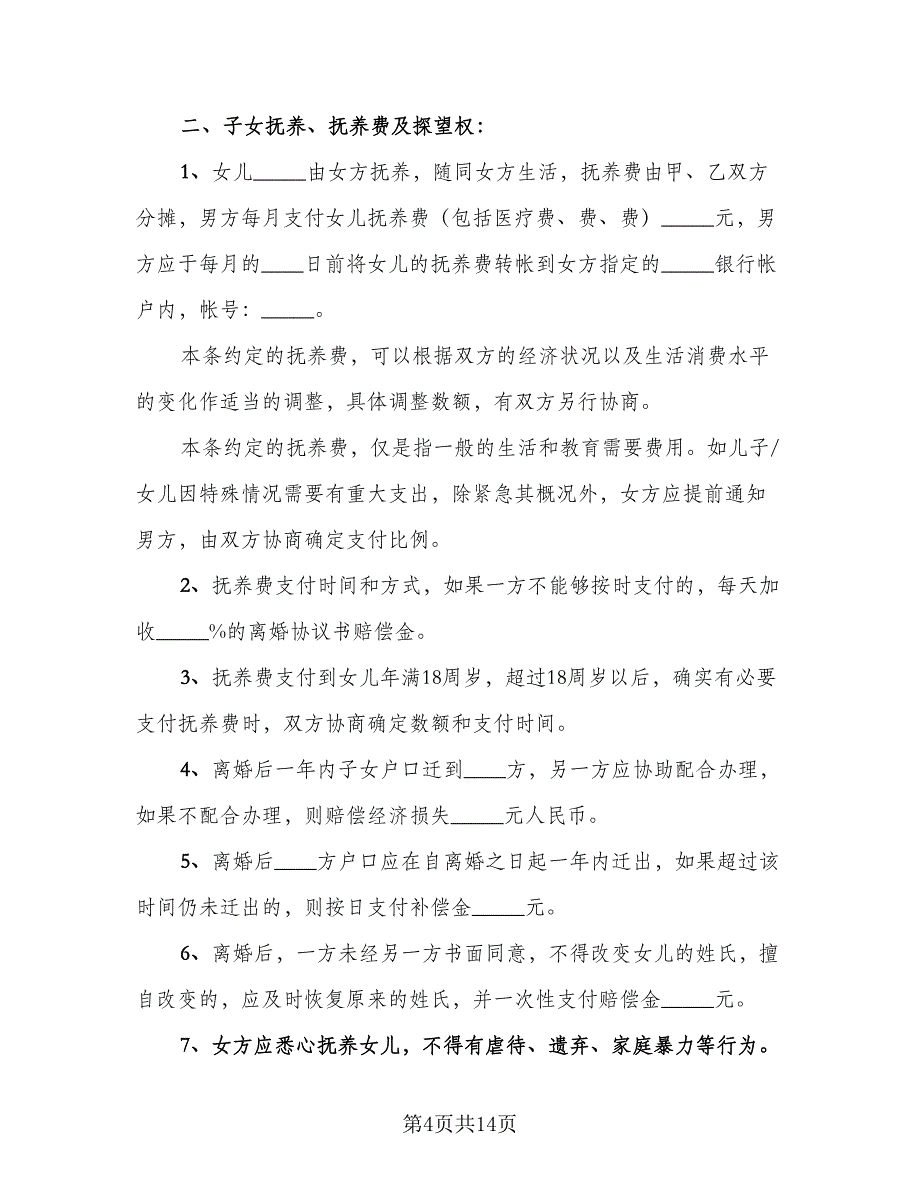 二、子女抚养、抚养费及探望权：
1、女儿_____由女方抚养，随同女方生活，抚养费由甲、乙双方
分摊，男方每月支付女儿抚养费（包括医疗费、费、费）_____元，男
方应于每月的____日前将女儿的抚养费转帐到女方指定的_____银行帐
户内，帐号：_____。
本条约定的抚养费，可以根据双方的经济状况以及生活消费水平
的变化作适当的调整，具体调整数额，有双方另行协商。
本条约定的抚养费，仅是指一般的生活和教育需要费用。如儿子/
女儿因特殊情况需要有重大支出，除紧急其概况外，女方应提前通知
男方，由双方协商确定支付比例。
2、抚养费支付时间和方式，如果一方不能够按时支付的，每天加
收_____%的离婚协议书赔偿金。
3、抚养费支付到女儿年满18周岁，超过18周岁以后，确实有必要
支付抚养费时，双方协商确定数额和支付时间。
4、离婚后一年内子女户口迁到____方，另一方应协助配合办理，
如果不配合办理，则赔偿经济损失_____元人民币。
5、离婚后____方户口应在自离婚之日起一年内迁出，如果超过该
时间仍未迁出的，则按日支付补偿金_____元。
6、离婚后，一方未经另一方书面同意，不得改变女儿的姓氏，擅
自改变的，应及时恢复原来的姓氏，并一次性支付赔偿金_____元。
7、女方应悉心抚养女儿，不得有虐待、遗弃、家庭暴力等行为。
第4页共14页